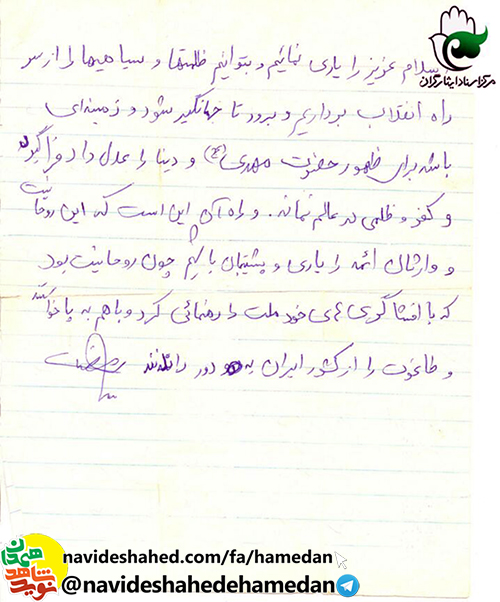 مرکز اسناد ایثارگران
اسلام عزیز را یاری نمائیم و بتوانیم ظلمتها و سیاهیها را از سر
راه انقلاب برداریم و برود تا جهانگیر شود و زمینه‌ای
باشد برای ظهور حضرت مهدی (عج) و دنیا را عدل و داد فراگیرد
و کفر و ظلمی در عالم نماند. و راه آن این است که این روحانیت
و وارثان ائمه را یاری و پشتیبان باشیم چون روحانیت بود
که با افشاگری‌های خود ملت را رهنمائی کرد و با هم به پا خواستند
و طاغوت را از کشور ایران به دور راندند
نوید شاهد همدان
navideshahed.com/fa/hamedan
@navideshahedehamedan